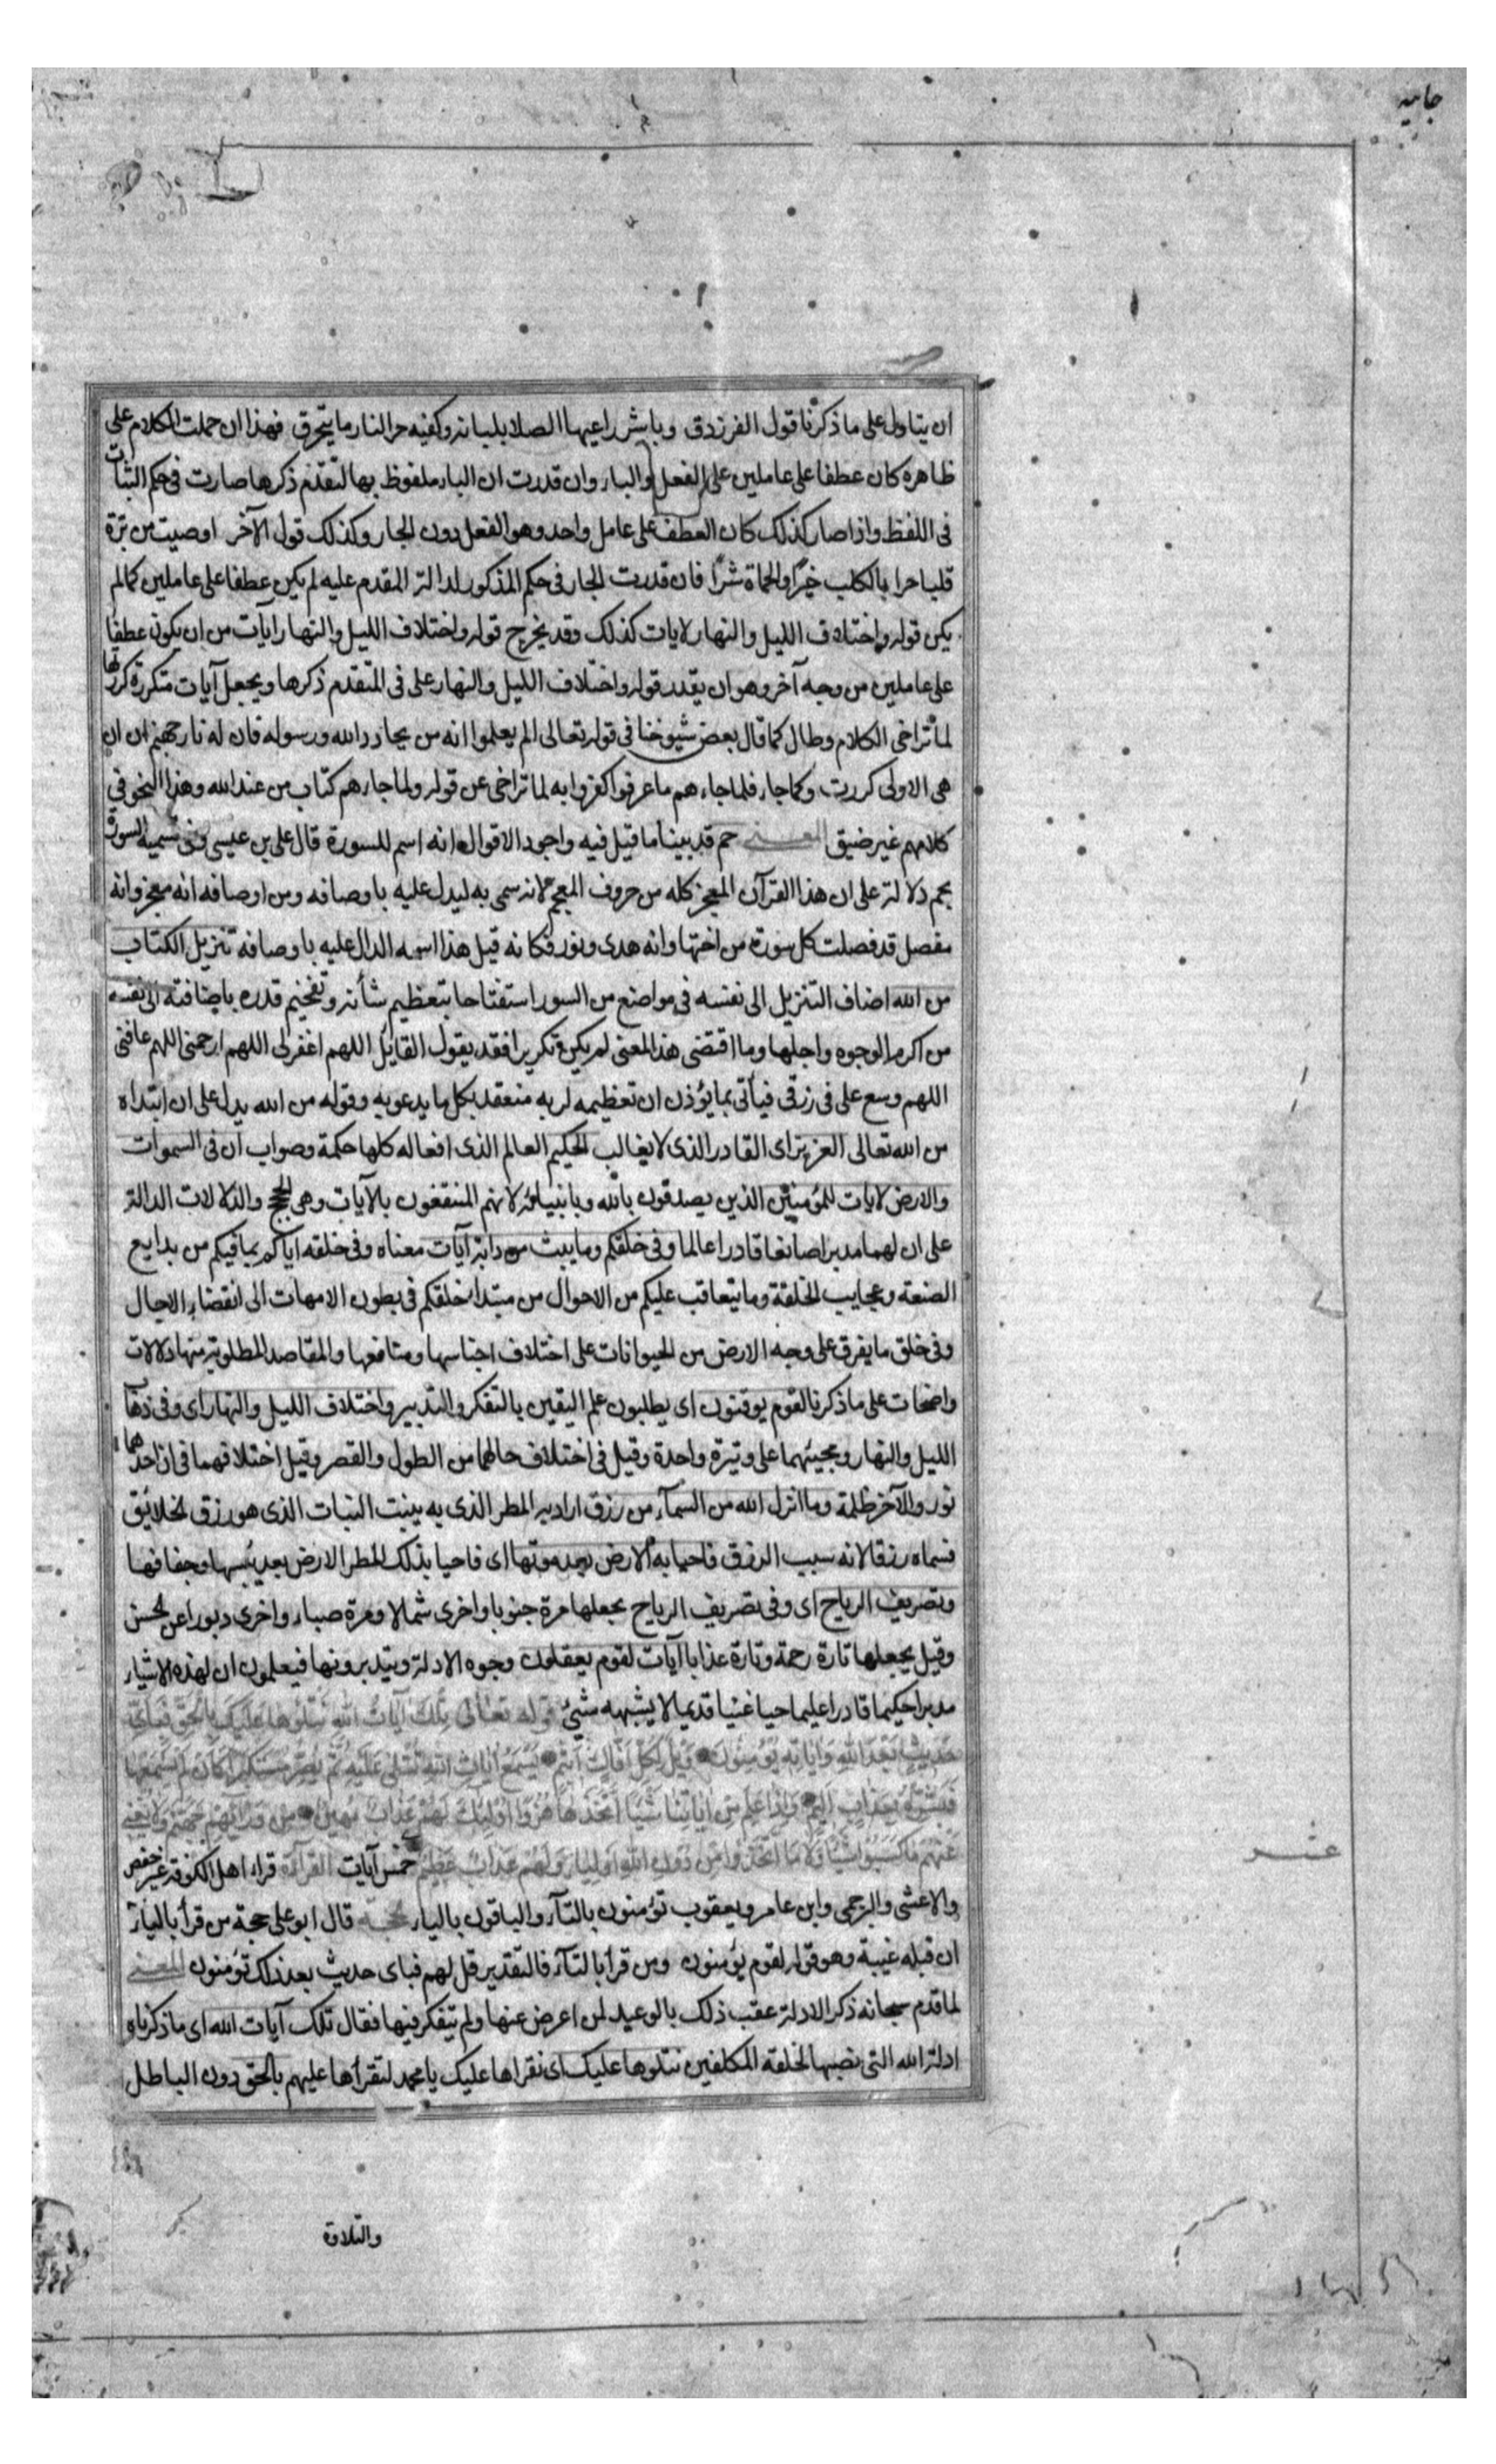 جاثيه
ان يتاول على ما ذكرنا قول الفرزدق وباشر راعيها الصلا بلبانه وكفيه حر النار ما يتحرق فهذا ان حملت الكلام على
ظاهره كان عطفا على عاملين على الفعل والباء وان قدرت ان الباء ملفوظ بها لتقدم ذكرها صارت فى حكم الثبات
فى اللفظ واذا صار كذلك كان العطف على عامل واحد وهو الفعل دون الجار وكذلك قول الآخر اوصيت من برة
قلبا حرا بالكلب خيرًا والحماة شرًا فان قدرت الجار فى حكم المذكور لدالة المقدم عليه لم يكن عطفا على عاملين كما لم
يكن قوله واختلاف الليل والنهار لايات كذلك وقد يخرج قوله واختلاف الليل والنهار آيات من ان يكون عطفا
على عاملين من وجه آخر وهو ان يقدر قوله واختلاف الليل والنهار على فى المتقدم ذكرها ويجعل آيات متكررة كررتها
لما تراخى الكلام وطال كما قال بعض شيوخنا فى قوله تعالى الم يعلموا انه من يحادد الله ورسوله فان له نار جهنم ان ان
هى الاولى كررت وكما جاء فلما جاءهم ما عرفوا كفروا به لما تراخى عن قوله ولما جاءهم كتاب من عند الله وهذا النحو في
كلامهم غير ضيق المعنى حم قد بينا ما قيل فيه واجود الاقوال انه اسم للسورة قال على بن عيسى وفى تسمية السورة
بحم دلالة على ان هذا القرآن المعجز كله من حروف المعجم لانه سمى به ليدل عليه باوصافه ومن اوصافه انه معجز وانه
مفصل قد فصلت كل سورة من اختها وانه هدى ونور فكانه قيل هذا اسمه الدال عليه باوصافه تنزيل الكتاب
من الله اضاف التنزيل الى نفسه فى مواضع من السور استفتاحا بتعظيم شأنه وتفخيم قدره باضافته الى نفسه
من اكرم الوجوه واجلها وما اقتضى هذا المعنى لم يكن تكريرا فقد يقول القايل اللهم اغفر لى اللهم ارحمنى اللهم عافنى
اللهم وسع على فى رزقى فيأتى بما يؤذن ان تعظيمه لربه منعقد بكل ما يدعو به وقوله من الله يدل على ان ابتداه
من الله تعالى العزيز اى القادر الذى لا يغالب الحكيم العالم الذى افعاله كلها حكمة وصواب ان فى السموات
والارض لايات للمؤمنين الذين يصدقون بالله وبانبيائه لانهم المنتفعون بالآيات وهى الحجج والدلالات الدالة
على ان لهما مدبرا صانعا قادرا عالما وفى خلقكم وما يبث من دابة آيات معناه وفى خلقه اياكم بما فيكم من بدايع
الصنعة وعجايب الخلقة وما يتعاقب عليكم من الاحوال من مبتدا خلقكم فى بطون الامهات الى انقضاء الاجال
وفى خلق ما يفرق على وجه الارض من الحيوانات على اختلاف اجناسها ومنافعها والمقاصد المطلوبة منها دلالات
واضحات على ما ذكرنا لقوم يوقنون اى يطلبون علم اليقين بالتفكر والتدبير واختلاف الليل والنهار اى وفى ذهاب
الليل والنهار ومجيئهما على وتيرة واحدة وقيل فى اختلاف حالهما من الطول والقصر وقيل اختلافهما فى ان احدهما
نور والآخر ظلمة وما انزل الله من السمآء من رزق اراد به المطر الذى به ينبت النبات الذى هو رزق الخلايق
فسماه رزقا لانه سبب الرزق فاحيا به الارض بعد موتها اى فاحيا بذلك المطر الارض بعد يبسها وجفافها
وتصريف الرياح اى وفى تصريف الرياح يجعلها مرة جنوبا واخرى شمالا ومرة صباء واخرى دبورا عن الحسن
وقيل يجعلها تارة رحمة وتارة عذابا آيات لقوم يعقلون وجوه الادلة ويتدبرونها فيعلمون ان لهذه الاشياء
مدبرا حكيما قادرا عليما حيا غنيا قديما لا يشبهه شئ قوله تعالى تِلْكَ آيَاتُ اللهِ نَتْلُوهَا عَلَيْكَ بِالْحَقِّ فَبِاَىِّ
حَدِيثٍ بَعْدَ اللهِ وَايَاتِهِ يُؤْمِنُونَ وَيْلٌ لِكُلِّ اَفَّاكٍ اَثِيمٍ يَسْمَعُ ايَاتِ اللهِ تُتْلَى عَلَيْهِ ثُمَّ يُصِرُّ مُسْتَكْبِرًا كَاَنْ لَمْ يَسْمَعْهَا
فَبَشِّرْهُ بِعَذَابٍ اَلِيمٍ وَاِذَا عَلِمَ مِنْ ايَاتِنَا شَيْئًا اتَّخَذَهَا هُزُوًا اُولٰئِكَ لَهُمْ عَذَابٌ مُهِينٌ مِنْ وَرَائِهِمْ جَهَنَّمُ وَلَا يُغْنِى
عَنْهُمْ مَا كَسَبُوا شَيْئًا وَلَا مَا اتَّخَذُوا مِنْ دُونِ اللهِ اَوْلِيَاءَ وَلَهُمْ عَذَابٌ عَظِيمٌ خمس آيات القراءة قراء اهل الكوفة غير حفص
عشر
والاعشى والبرجمى وابن عامر ويعقوب تؤمنون بالتآء والباقون بالياء الحجة قال ابو على حجة من قرأ بالياء
ان قبله غيبة وهو قوله لقوم يؤمنون ومن قرأ بالتآء فالتقدير قل لهم فباى حديث بعد ذلك تؤمنون المعنى
لما قدم سبحانه ذكر الادلة عقب ذلك بالوعيد لمن اعرض عنها ولم يتفكر فيها فقال تلك آيات الله اى ما ذكرناه
ادلة الله التى نصبها لخلقه المكلفين نتلوها عليك اى نقراها عليك يا محمد لتقرأها عليهم بالحق دون الباطل
والتلاوة